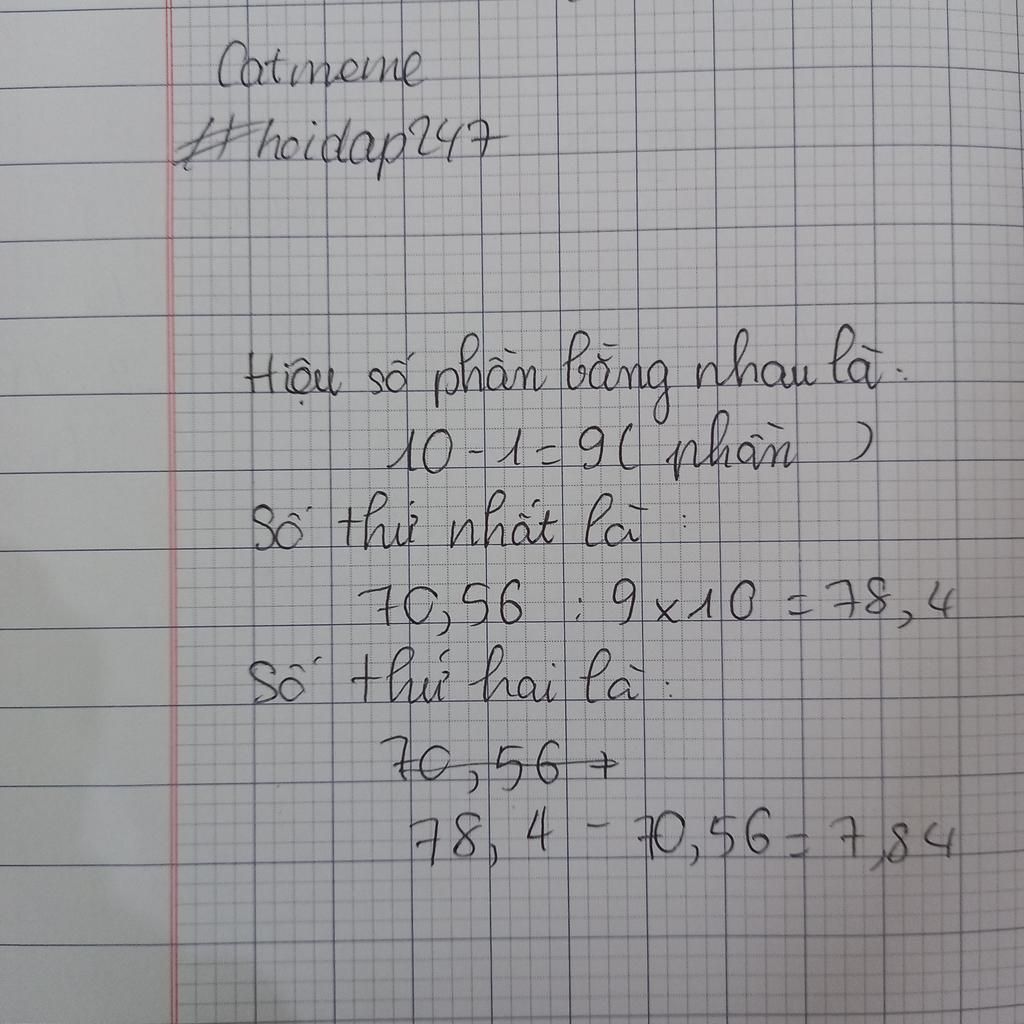 Catmeme
#hoidap247
Hiệu số phần bằng nhau là:
10 - 1 = 9 ( phần )
Số thứ nhất là :
70,56 : 9 x 10 = 78,4
Số thứ hai là :
70,56 +
78,4 - 70,56 = 7,84